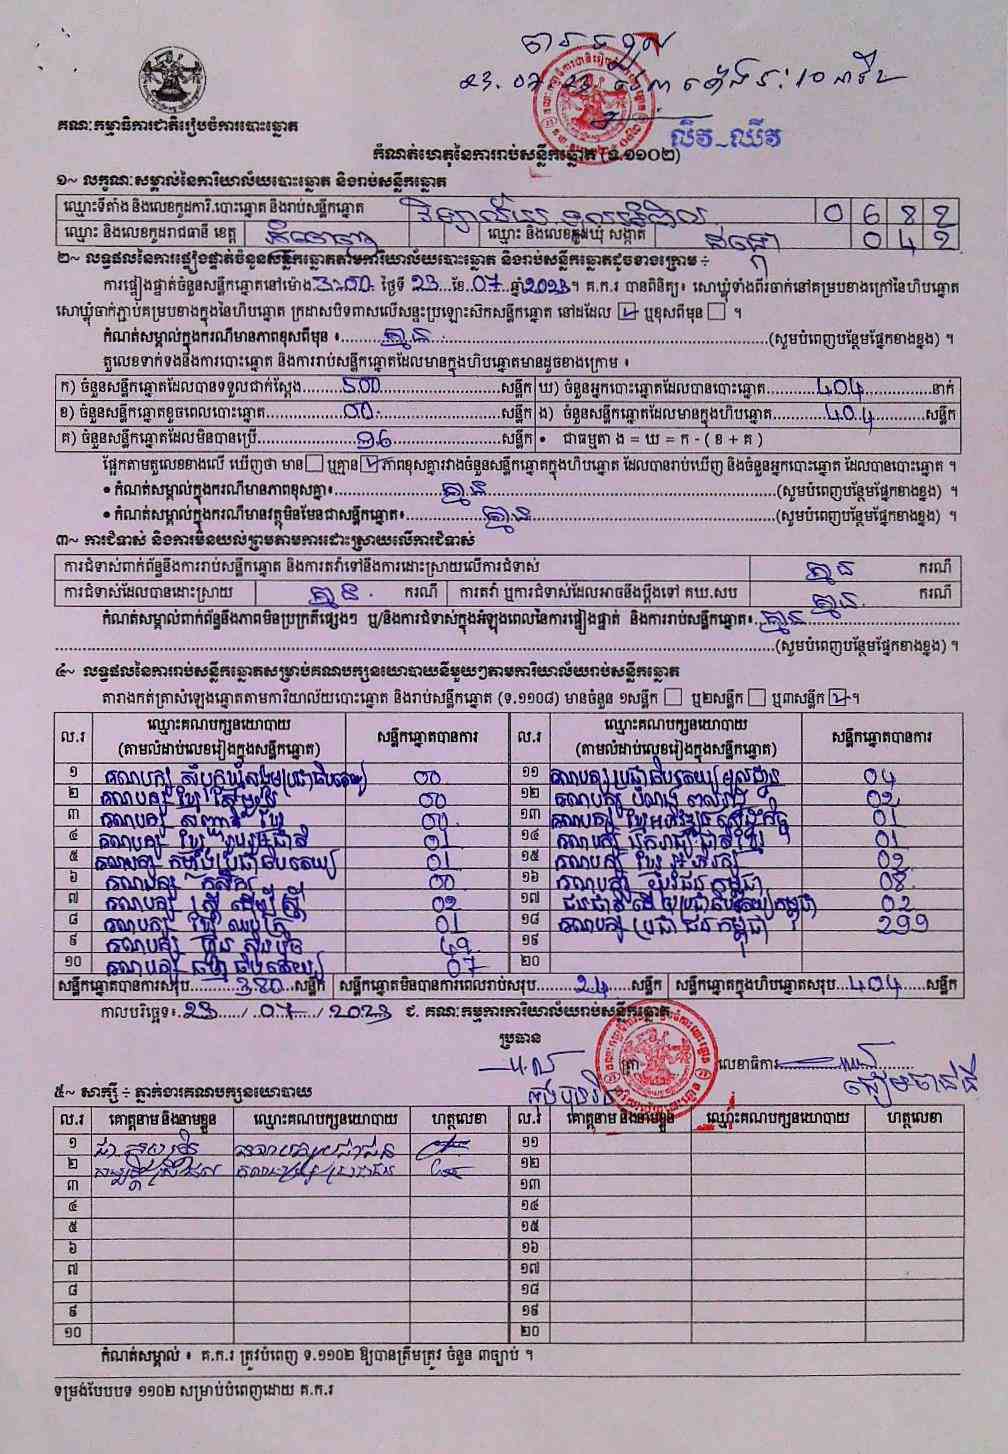 បានទទួល
23.07.23 វេលាម៉ោង: 10 នាទី
គណៈកម្មាធិការជាតិរៀបចំការបោះឆ្នោត
លឹវ~ឈីវ
កំណត់ហេតុនៃការរាប់សន្លឹកឆ្នោត (ទ.១១០២)
១~ លក្ខណៈសម្គាល់នៃការិយាល័យបោះឆ្នោត និងរាប់សន្លឹកឆ្នោត
ឈ្មោះទីតាំង និងលេខកូដការិ.បោះឆ្នោត និងរាប់សន្លឹកឆ្នោត វិទ្យាល័យ 0682
ឈ្មោះ និងលេខកូដរាជធានី ខេត្ត ឈ្មោះ និងលេខកូដឃុំ សង្កាត់ ដង្កោ 042
២~ លទ្ធផលនៃការផ្ទៀងផ្ទាត់ចំនួនសន្លឹកឆ្នោតតាមការិយាល័យបោះឆ្នោត និងរាប់សន្លឹកឆ្នោតដូចខាងក្រោម ÷
ការផ្ទៀងផ្ទាត់ចំនួនសន្លឹកឆ្នោតនៅម៉ោង.3:00. ថ្ងៃទី 23..ខែ..07..ឆ្នាំ2023។ គ.ក.រ បានពិនិត្យ៖ សោឃ្លុំទាំងពីរចាក់នៅគម្របខាងក្រៅនៃហិបឆ្នោត
សោឃ្លុំចាក់ភ្ជាប់គម្របខាងក្នុងនៃហិបឆ្នោត ក្រដាសបិទពាសលើសន្ទះប្រឡោះស៊កសន្លឹកឆ្នោត នៅដដែល ☑ ឬខុសពីមុន ☐ ។
កំណត់សម្គាល់ក្នុងករណីមានភាពខុសពីមុន ៖ គ្មាន (សូមបំពេញបន្ថែមផ្នែកខាងខ្នង) ។
តួលេខទាក់ទងនឹងការបោះឆ្នោត និងការរាប់សន្លឹកឆ្នោតដែលមានក្នុងហិបឆ្នោតមានដូចខាងក្រោម ៖
ក) ចំនួនសន្លឹកឆ្នោតដែលបានទទួលជាក់ស្ដែង 500 សន្លឹក ឃ) ចំនួនអ្នកបោះឆ្នោតដែលបានបោះឆ្នោត 404 នាក់
ខ) ចំនួនសន្លឹកឆ្នោតខូចពេលបោះឆ្នោត 00 សន្លឹក ង) ចំនួនសន្លឹកឆ្នោតដែលមានក្នុងហិបឆ្នោត 404 សន្លឹក
គ) ចំនួនសន្លឹកឆ្នោតដែលមិនបានប្រើ 96 សន្លឹក • ជាធម្មតា ង = ឃ = ក - ( ខ + គ )
ផ្អែកតាមតួលេខខាងលើ ឃើញថា មាន☐ ឬគ្មាន☑ភាពខុសគ្នារវាងចំនួនសន្លឹកឆ្នោតក្នុងហិបឆ្នោត ដែលបានរាប់ឃើញ និងចំនួនអ្នកបោះឆ្នោត ដែលបានបោះឆ្នោត ។
• កំណត់សម្គាល់ក្នុងករណីមានភាពខុសគ្នា៖ គ្មាន (សូមបំពេញបន្ថែមផ្នែកខាងខ្នង) ។
• កំណត់សម្គាល់ក្នុងករណីមានវត្ថុមិនមែនជាសន្លឹកឆ្នោត៖ គ្មាន (សូមបំពេញបន្ថែមផ្នែកខាងខ្នង) ។
៣~ ការជំទាស់ និងការមិនយល់ព្រមតាមការដោះស្រាយលើការជំទាស់
ការជំទាស់ពាក់ព័ន្ធនឹងការរាប់សន្លឹកឆ្នោត និងការតវ៉ាទៅនឹងការដោះស្រាយលើការជំទាស់ គ្មាន ករណី
ការជំទាស់ដែលបានដោះស្រាយ គ្មាន ករណី ការតវ៉ា ឬការជំទាស់ដែលអាចនឹងប្ដឹងទៅ គឃ.សប គ្មាន ករណី
កំណត់សម្គាល់ពាក់ព័ន្ធនឹងភាពមិនប្រក្រតីផ្សេងៗ ឬ/និងការជំទាស់ក្នុងអំឡុងពេលនៃការផ្ទៀងផ្ទាត់ និងការរាប់សន្លឹកឆ្នោត៖ គ្មាន
(សូមបំពេញបន្ថែមផ្នែកខាងខ្នង) ។
៤~ លទ្ធផលនៃការរាប់សន្លឹកឆ្នោតសម្រាប់គណបក្សនយោបាយនីមួយៗតាមការិយាល័យរាប់សន្លឹកឆ្នោត
តារាងកត់ត្រាសំឡេងឆ្នោតតាមការិយាល័យបោះឆ្នោត និងរាប់សន្លឹកឆ្នោត (ទ.១១០៨) មានចំនួន ១សន្លឹក ☐ ឬ២សន្លឹក ☐ ឬ៣សន្លឹក ☑។
ល.រ ឈ្មោះគណបក្សនយោបាយ (តាមលំដាប់លេខរៀងក្នុងសន្លឹកឆ្នោត) សន្លឹកឆ្នោតបានការ ល.រ ឈ្មោះគណបក្សនយោបាយ (តាមលំដាប់លេខរៀងក្នុងសន្លឹកឆ្នោត) សន្លឹកឆ្នោតបានការ
១ គណបក្ស សំបុកឃ្មុំសង្គមប្រជាធិបតេយ្យ 00 ១១ គណបក្សប្រជាធិបតេយ្យមូលដ្ឋាន 04
២ គណបក្ស ខ្មែរ 00 ១២ គណបក្ស បំណង 02
៣ គណបក្ស សញ្ជាតិ ខ្មែរ 00 ១៣ គណបក្ស ខ្មែរអភិវឌ្ឍន៍សេដ្ឋកិច្ច 01
៤ គណបក្ស ខ្មែរ រួបរួមជាតិ 01 ១៤ គណបក្ស ឯករាជ្យជាតិខ្មែរ 01
៥ គណបក្ស កម្លាំងប្រជាធិបតេយ្យ 01 ១៥ គណបក្ស ខ្មែរ អភិរក្ស 02
៦ គណបក្ស កសិករ 00 ១៦ គណបក្ស យុវជន កម្ពុជា 08
៧ គណបក្ស ស្ត្រី ដើម្បី ស្ត្រី 02 ១៧ ជនជាតិដើមប្រជាធិបតេយ្យកម្ពុជា 02
៨ គណបក្ស ខ្មែរ ឈប់ក្រ 01 ១៨ គណបក្ស ប្រជាជនកម្ពុជា 299
៩ គណបក្ស ហ៊្វុនស៊ិនប៉ិច 49 ១៩
១០ គណបក្ស ធម្មាធិបតេយ្យ 07 ២០
សន្លឹកឆ្នោតបានការសរុប 380 សន្លឹក សន្លឹកឆ្នោតមិនបានការពេលរាប់សរុប 24 សន្លឹក សន្លឹកឆ្នោតក្នុងហិបឆ្នោតសរុប 404 សន្លឹក
កាលបរិច្ឆេទ៖ 23 / 07 / 2023 ជ. គណៈកម្មការការិយាល័យរាប់សន្លឹកឆ្នោត
ប្រធាន
ត្រា លេខាធិការ
៥~ សាក្សី ÷ ភ្នាក់ងារគណបក្សនយោបាយ
ល.រ គោត្តនាម និងនាមខ្លួន ឈ្មោះគណបក្សនយោបាយ ហត្ថលេខា ល.រ គោត្តនាម និងនាមខ្លួន ឈ្មោះគណបក្សនយោបាយ ហត្ថលេខា
១ គណបក្សប្រជាជន ១១
២ គណបក្ស ប្រជាជន ១២
៣ ១៣
៤ ១៤
៥ ១៥
៦ ១៦
៧ ១៧
៨ ១៨
៩ ១៩
១០ ២០
កំណត់សម្គាល់ ៖ គ.ក.រ ត្រូវបំពេញ ទ.១១០២ ឱ្យបានត្រឹមត្រូវ ចំនួន ៣ច្បាប់ ។
ទម្រង់បែបបទ ១១០២ សម្រាប់បំពេញដោយ គ.ក.រ